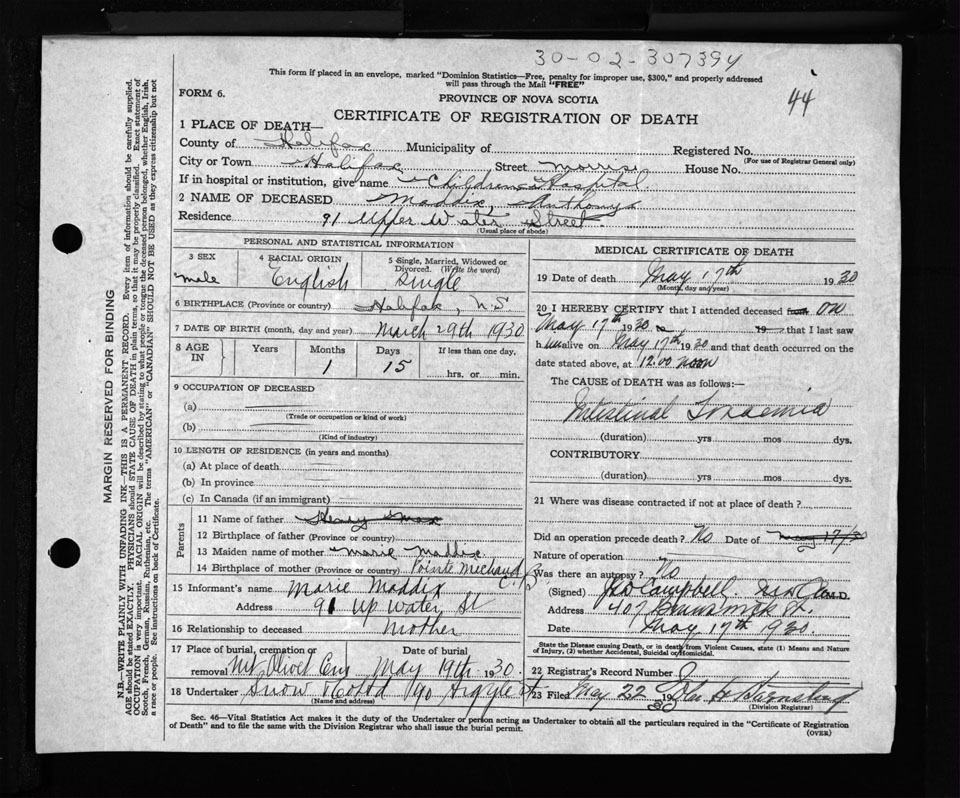 30-02-307394
44
This form if placed in an envelope, marked "Dominion Statistics—Free, penalty for improper use, $300," and properly addressed
will pass through the Mail "FREE"
FORM 6.
PROVINCE OF NOVA SCOTIA
CERTIFICATE OF REGISTRATION OF DEATH
1 PLACE OF DEATH—
County of Halifax Municipality of Registered No.
(For use of Registrar General only)
City or Town Halifax Street Morris House No.
If in hospital or institution, give name Childrens Hospital
2 NAME OF DECEASED Maddix, Anthony
Residence 91 Upper Water Street
(Usual place of abode)
PERSONAL AND STATISTICAL INFORMATION
3 SEX 4 RACIAL ORIGIN 5 Single, Married, Widowed or
Divorced. (Write the word)
male English Single
6 BIRTHPLACE (Province or country) Halifax, N S
7 DATE OF BIRTH (month, day and year) March 29th 1930
8 AGE IN Years Months Days If less than one day,
1 15 hrs. or min.
9 OCCUPATION OF DECEASED
(a)
(Trade or occupation or kind of work)
(b)
(Kind of industry)
10 LENGTH OF RESIDENCE (in years and months)
(a) At place of death
(b) In province
(c) In Canada (if an immigrant)
Parents
11 Name of father Henry
12 Birthplace of father (Province or country)
13 Maiden name of mother Marie Maddix
14 Birthplace of mother (Province or country) Pointe Michaud C.B
15 Informant's name Marie Maddix
Address 91 Up Water St
16 Relationship to deceased Mother
17 Place of burial, cremation or Date of burial
removal Mt Olivet Cem May 19th 1930.
18 Undertaker Snow 90 Argyle St
(Name and address)
MEDICAL CERTIFICATE OF DEATH
19 Date of death May 17th 1930
(Month, day and year)
20 I HEREBY CERTIFY that I attended deceased from on
May 17th 1930 to 19 that I last saw
h im alive on May 17th 1930 and that death occurred on the
date stated above, at 12.00 noon
The CAUSE of DEATH was as follows:—
Intestinal Toxaemia
(duration) yrs mos dys.
CONTRIBUTORY
(duration) yrs mos dys.
21 Where was disease contracted if not at place of death?
Did an operation precede death? No Date of May 17/30
Nature of operation
Was there an autopsy? No
(Signed) Campbell M.D.
Address 407 Brunswick St.
Date May 17th 1930.
State the Disease causing Death, or in death from Violent Causes, state (1) Means and Nature
of Injury, (2) whether Accidental, Suicidal or Homicidal.
22 Registrar's Record Number
23 Filed May 22 1930 John H Barnstead
(Division Registrar)
Sec. 46—Vital Statistics Act makes it the duty of the Undertaker or person acting as Undertaker to obtain all the particulars required in the "Certificate of Registration
of Death" and to file the same with the Division Registrar who shall issue the burial permit.
(OVER)
MARGIN RESERVED FOR BINDING
N.B.—WRITE PLAINLY WITH UNFADING INK—THIS IS A PERMANENT RECORD. Every item of information should be carefully supplied.
AGE should be stated EXACTLY. PHYSICIANS should STATE CAUSE OF DEATH in plain terms, so that it may be properly classified. Exact statement of
OCCUPATION is very important. RACIAL ORIGIN will be described by stating to what people or tongue the deceased person belonged, whether English, Irish,
Scotch, French, German, Russian, Ruthenian, etc. The terms "AMERICAN" or "CANADIAN" SHOULD NOT BE USED as they express citizenship but not
a race or people. See instructions on back of Certificate.